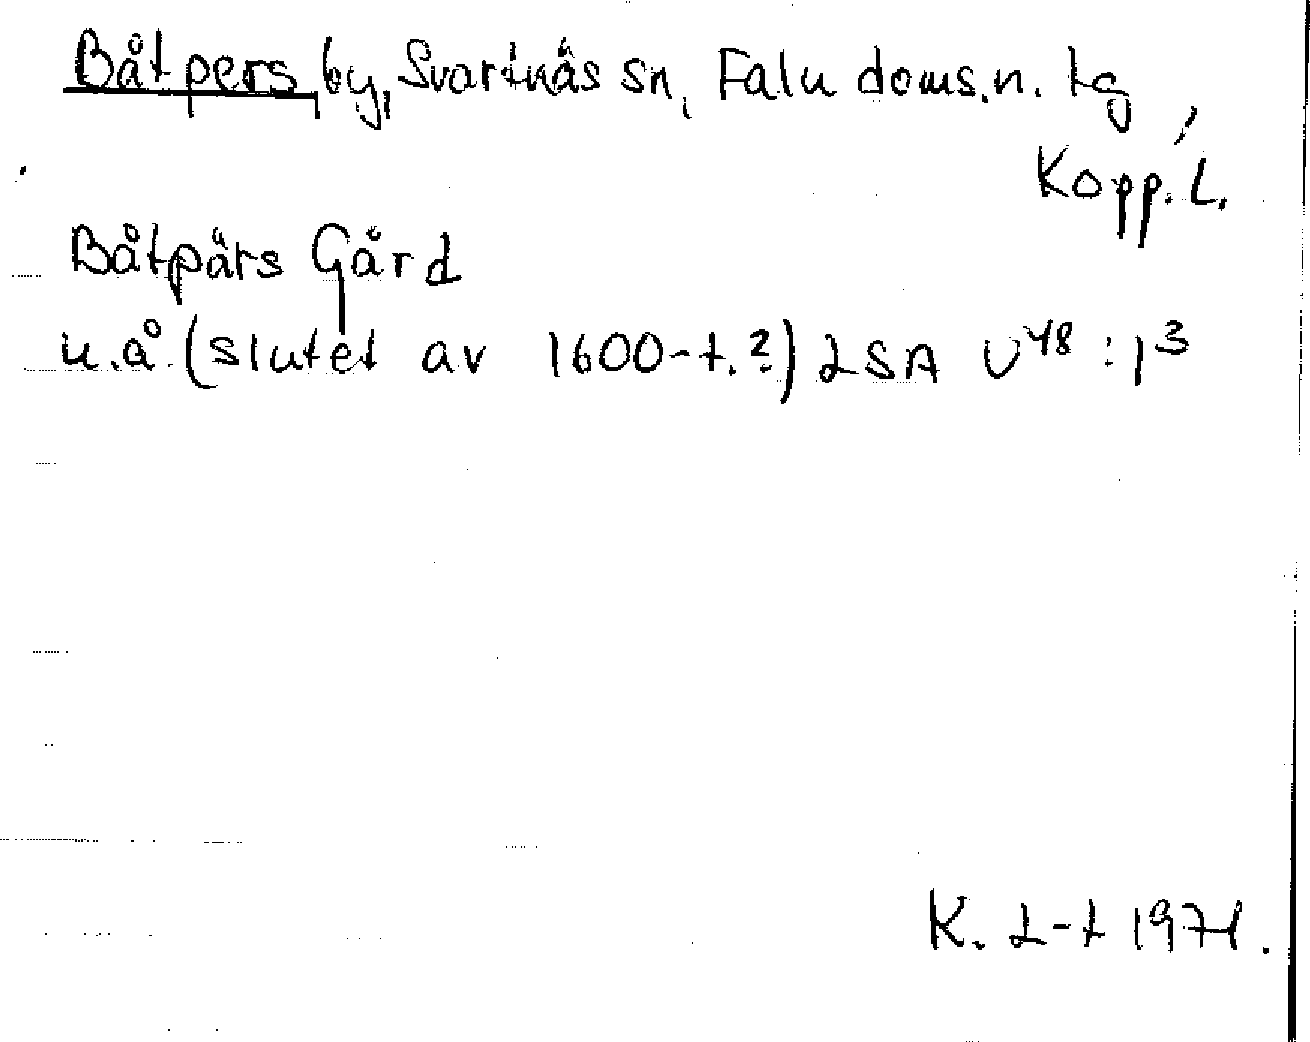 Båtpers, by, Svartnäs sn, Falu doms.n. tg,
Kopp. L.
Båtpärs Gård
u.å. (slutet av 1600-t.?) LSA U48:1³
K. L-t 1971.